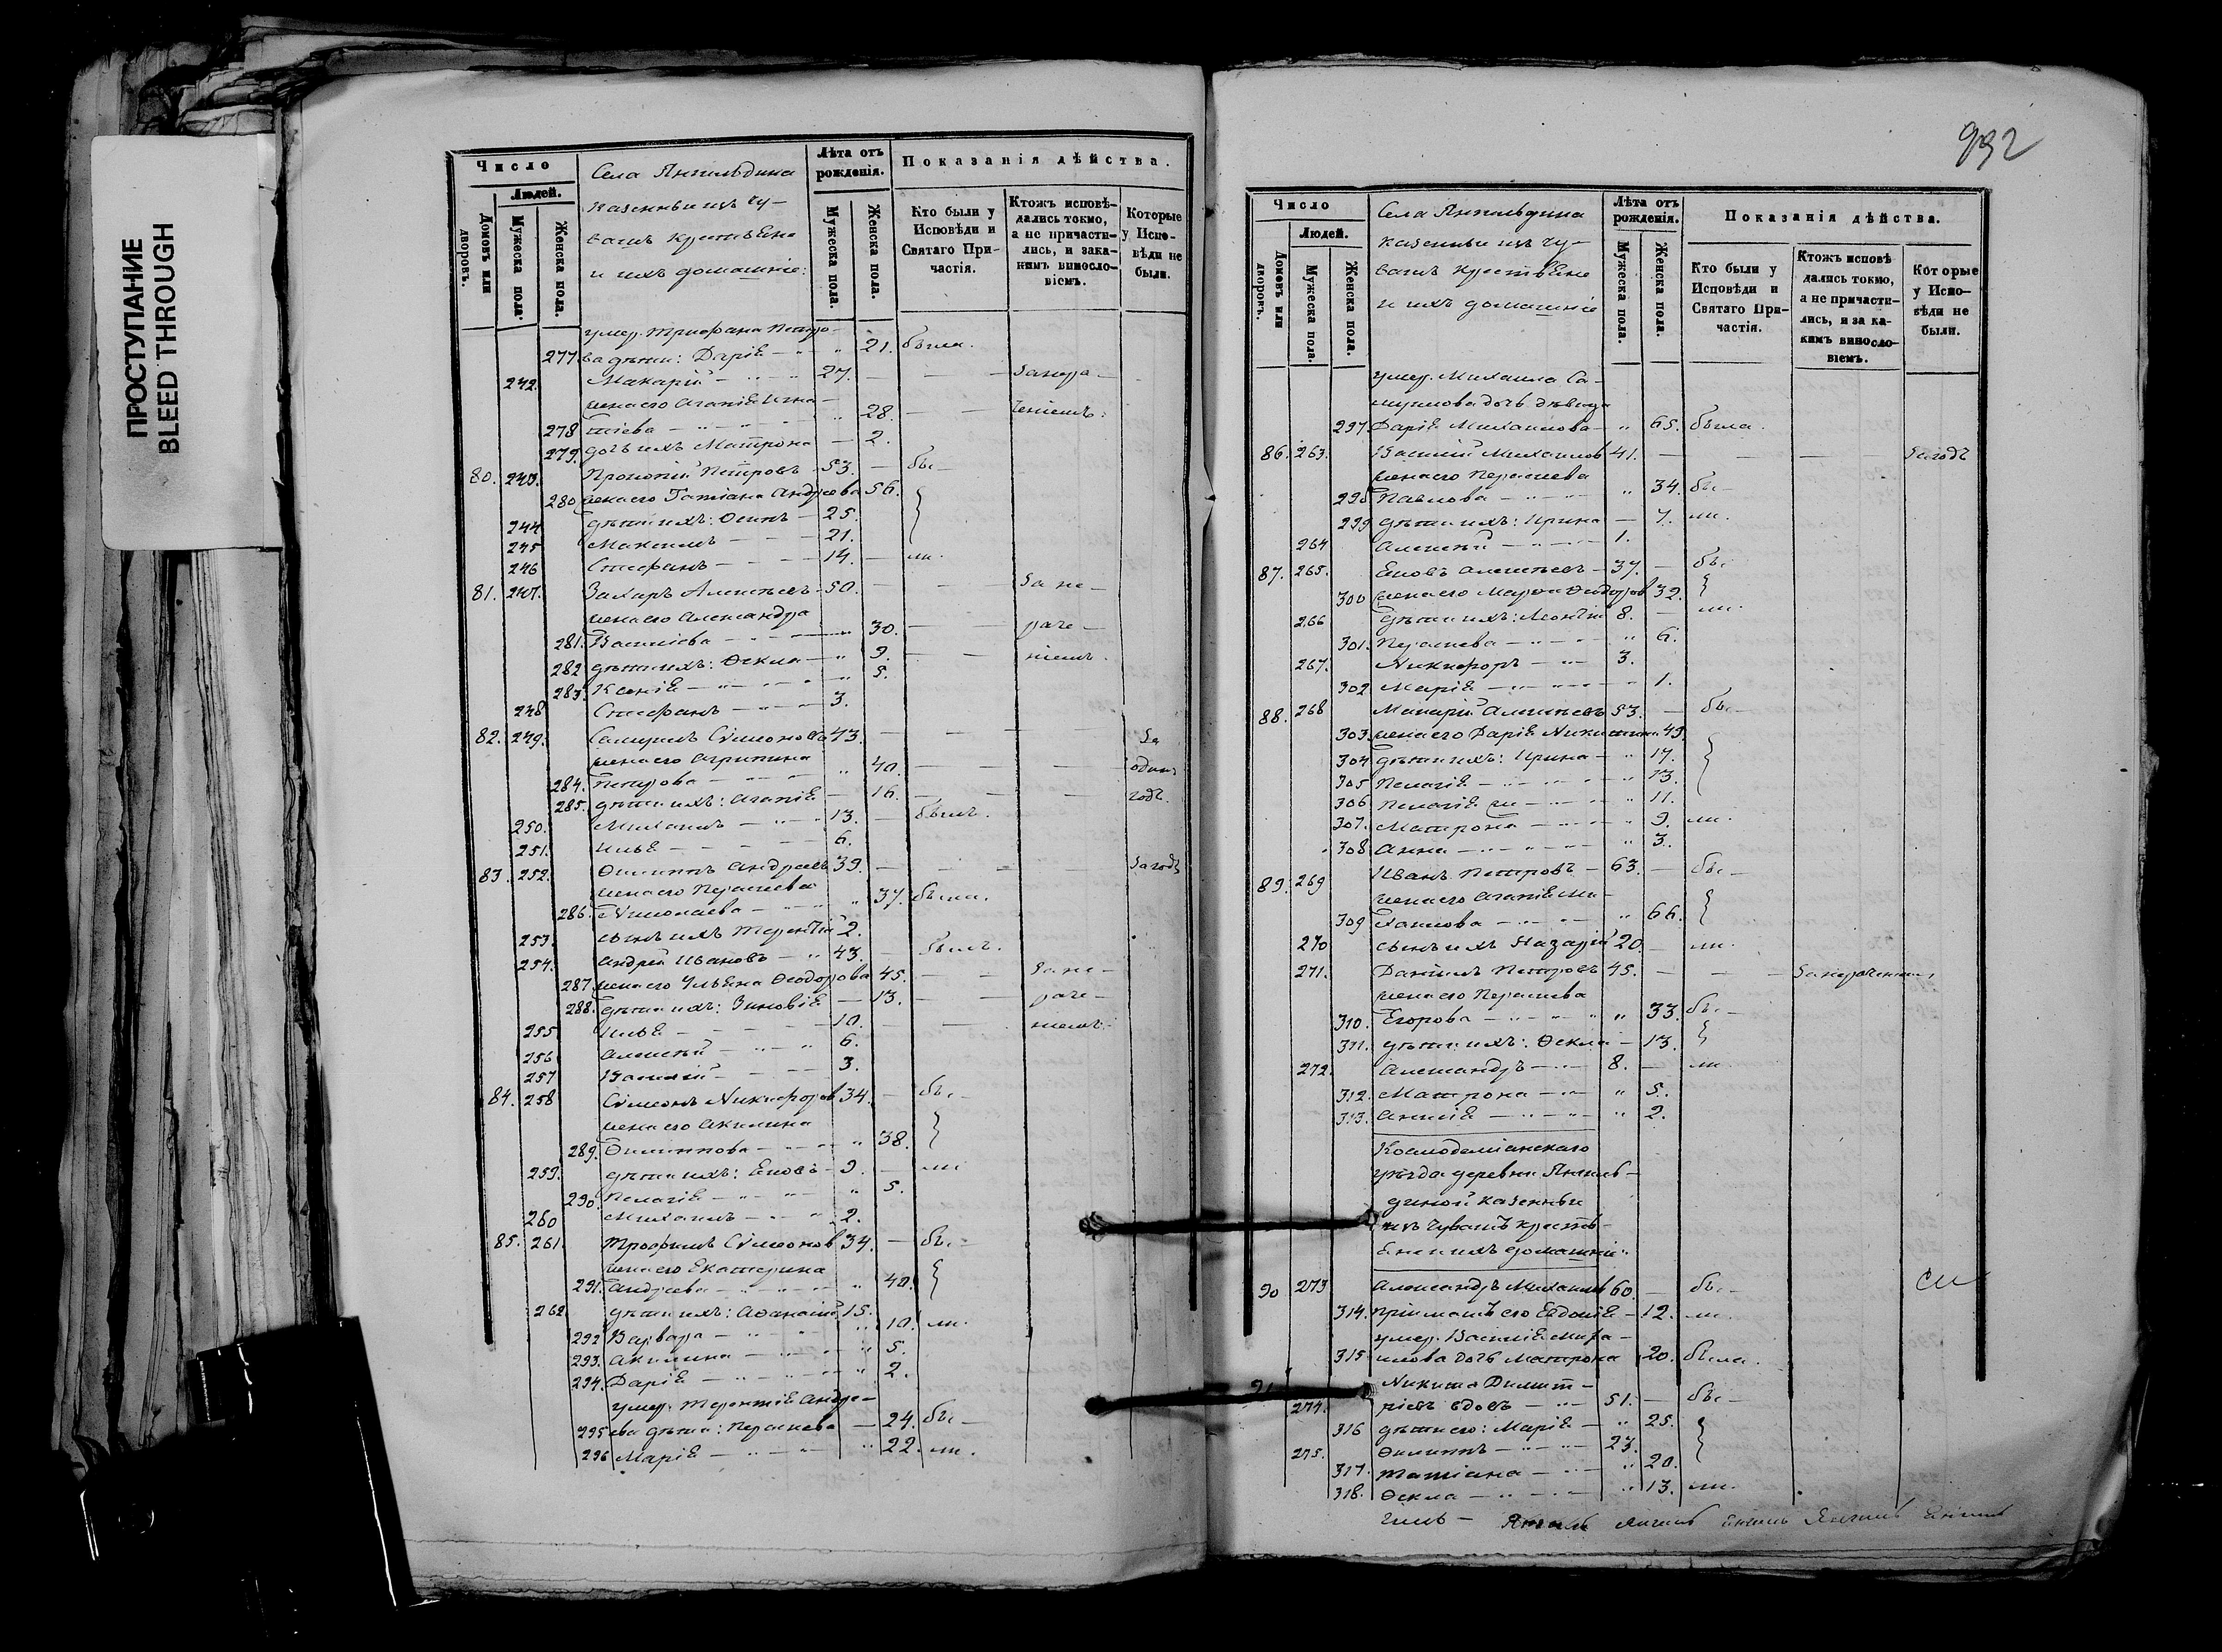 ПРОСТУПАНИЕ
BLEED THROUGH
Число
Людей.
Домовъ или дворовъ.
Мужеска пола.
Женска пола.
Села Янгильдина
казенныихъ чу-
вашъ крестьяне
и ихъ домашніе:
Лѣта отъ рожденія.
Мужеска пола.
Женска пола.
Показанія дѣйства.
Кто были у Исповѣди и Святаго При-частія.
Ктожъ исповѣ-дались токмо, а не причасти-лись, и зака-кимъ винносло-віемъ.
Которые у Испо-вѣди не были.
умер. Трифона Петро-
277. ва дѣти: Дарія — " 21. была.
242. Макарій — 27. — — занера-
жена его Агапія Игна-
278 тіева — " 28. — — ченіемъ.
279. дочь ихъ Матрона — 2.
80. 243. Прокопій Петровъ — 53. — бы-
280 жена его Татіана Андреева 56.
244 дѣти ихъ: Осипъ — 25.
245 Максимъ — 21.
246 Стефанъ — 14. — ли.
81. 247. Захаръ Алексѣевъ — 50. — — за не-
жена его Александра
281. Васильева — " 30. — — раче-
282 дѣти ихъ: Ѳекла — " 9. — — ніемъ.
283. Ксенія — " 5.
248 Стефанъ — 3.
82. 249. Самуилъ Сѵмеонова 43. — — — за
жена его Агрипина
284. Петрова — " 40. — — — одинъ
285. дѣти ихъ: Агапія — 16. — — — годъ.
250. Михаилъ — 13. — былъ.
251. Илья — 6.
83. 252. Филиппъ Андреевъ 39. — — — за годъ
жена его Параскева
286. Николаева — " 37. была.
253. сынъ ихъ Терентій 2.
254. Андрей Ивановъ — " 43. былъ.
287. жена его Ульяна Ѳеодорова 45. — — за не-
288. дѣти ихъ: Зиновія — 13. — — раче-
255 Илья — 10. — — ніемъ.
256 Алексѣй — 6.
257 Василій — 3.
84. 258 Сѵмеонъ Никифоров 34. — бы-
жена его Акилина
289. Филиппова — " 38.
259. дѣти ихъ: Еновъ — 9. — ли
290. Пелагія — " 5.
260 Михаилъ — 2.
85. 261. Трофимъ Сѵмеонов 34. — бы-
жена его Екатерина
291. Андреева — " 40.
262 дѣти ихъ: Аѳанасій 15.
292 Варвара — " 10. ли.
293. Акилина — " 5.
294. Дарія — " 2.
умер. Терентія Андре-
295 ева дѣти: Параскева — 24. бы-
296 Марія — " 22. ли.
992
Число
Людей.
Домовъ или дворовъ.
Мужеска пола.
Женска пола.
Села Янгильдина
казенныихъ чу-
вашъ крестьяне
и ихъ домашніе
Лѣта отъ рожденія.
Мужеска пола.
Женска пола.
Показанія дѣйства.
Кто были у Исповѣди и Святаго При-частія.
Ктожъ исповѣ дались токмо, а не причасти-лись, и за ка-кимъ винносло-віемъ.
Которые у Испо-вѣди не были.
умер. Михаила Са-
муилова дочь дѣвица
297. Дарія Михаилова — " 65. была.
86. 263. Василій Михаилов 41. — — — за годъ
жена его Параскева
298 Павлова — " 34. бы-
299 дѣти ихъ: Ирина — 7. ли.
264 Алексѣй — 1.
87. 265. Еновъ Алексѣевъ — 37. — бы-
300 жена его Марѳа Ѳеодоров 32.
266 дѣти ихъ: Леонтій 8. — ли.
301. Параскева — " 6.
267. Никифоръ — 3.
302 Марія — " 1.
88. 268 Макарій Алексѣевъ 53. — бы-
303. жена его Дарія Никитина 49.
304 дѣти ихъ: Ирина — " 17.
305 Пелагія — " 13.
306 Пелагія — " 11.
307. Матрона — " 9. ли.
308 Анна — " 3.
89. 269 Иванъ Петровъ — 63. — бы-
жена его Агапія Ми-
309 хаилова — " 66.
270 сынъ ихъ Назарій 20. — ли.
271. Даніилъ Петровъ 45. — — занераченіемъ
жена его Параскева
310. Егорова — " 33. бы-
311. дѣти ихъ: Ѳекла — 13.
272. Александръ — 8. — ли.
312. Матрона — " 5.
313. Анисія — " 2.
Космодеміанскаго
уѣзда деревни Янгиль-
диной казенны
ихъ чувашъ кресть-
яне и ихъ домашніе:
90 273 Александръ Михаилов 60. — бы-
314. пріимышъ его Евдокія — 12. ли.
умер. Василія Миха-
315 илова дочь Матрона 20. была.
91. Никита Димит-
274. ріевъ вдовъ — 51. — бы-
316 дѣти его: Марія — " 25.
275. Филиппъ — 23.
317. Татіана — " 20.
318. Ѳекла — " 13. ли.